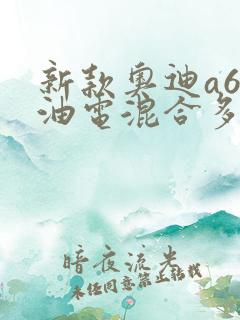 新款奥迪a6
油电混合多
暗夜流光
未经同意禁止转载